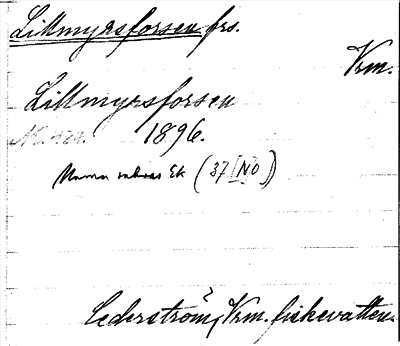 Lillmyrsforsen frs.
Vrm.
Lillmyrsforsen
1896.
Namn saknas Ek (37 INO)
Cederström, Vrm. fiskevatten.